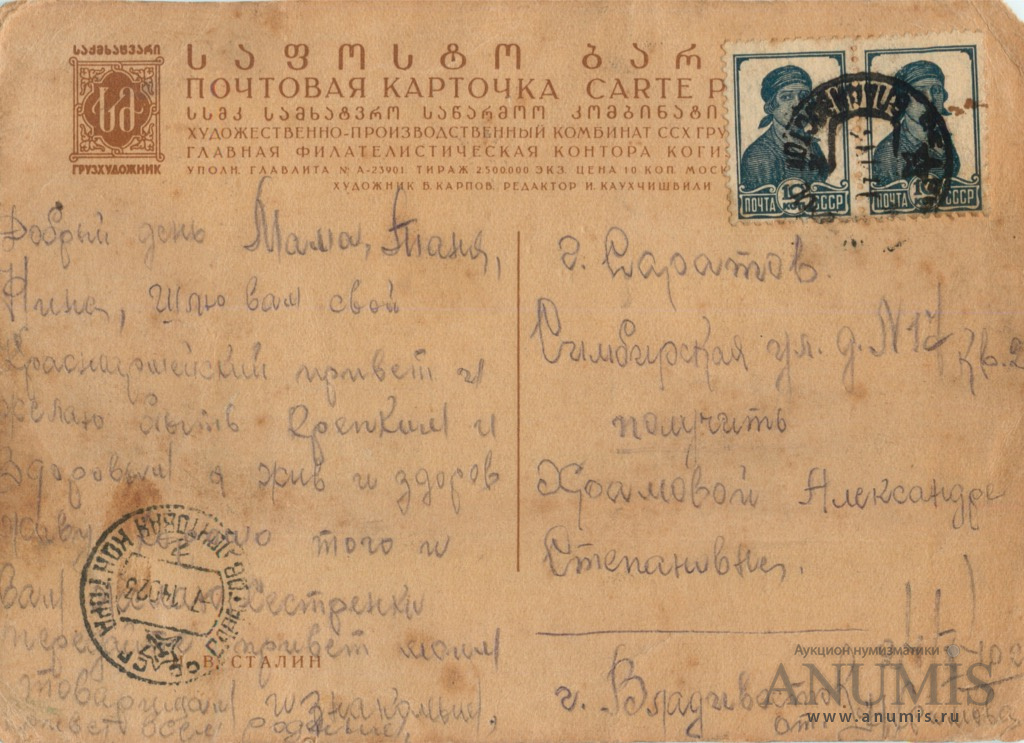 საქმხატვარი
ГРУЗХУДОЖНИК
ᲡᲐᲤᲝᲡᲢᲝ ᲑᲐᲠ
ПОЧТОВАЯ КАРТОЧКА CARTE P
ᲡᲐᲛᲮᲐᲢᲕᲠᲝ ᲡᲐᲬᲐᲠᲛᲝᲝ ᲙᲝᲛᲑᲘᲜᲐᲢᲘ
ХУДОЖЕСТВЕННО-ПРОИЗВОДСТВЕННЫЙ КОМБИНАТ ССХ ГРУ
ГЛАВНАЯ ФИЛАТЕЛИСТИЧЕСКАЯ КОНТОРА КОГИ
УПОЛН. ГЛАВЛИТА № А-23901. ТИРАЖ 2500000 ЭКЗ. ЦЕНА 10 КОП. МОСК
ХУДОЖНИК В. КАРПОВ. РЕДАКТОР И. КАУХЧИШВИЛИ
ПОЧТА 10 КОП СССР
ПОЧТА 10 СССР
Добрый день Мама, Таня,
Нина, шлю вам свой
Красноармейский привет и
желаю быть крепким и
здоровым я жив и здоров
живу того и
вам сестренки
привет моим
товарищам и знакомым.
привет всем родным,
И. В. СТАЛИН
г. Саратов.
Симбирская ул. д. N 17 кв. 2
получить
Храмовой Александре
Степановне.
г. Владивосток
от Храмова
Аукцион нумизматики
ANUMIS
www.anumis.ru